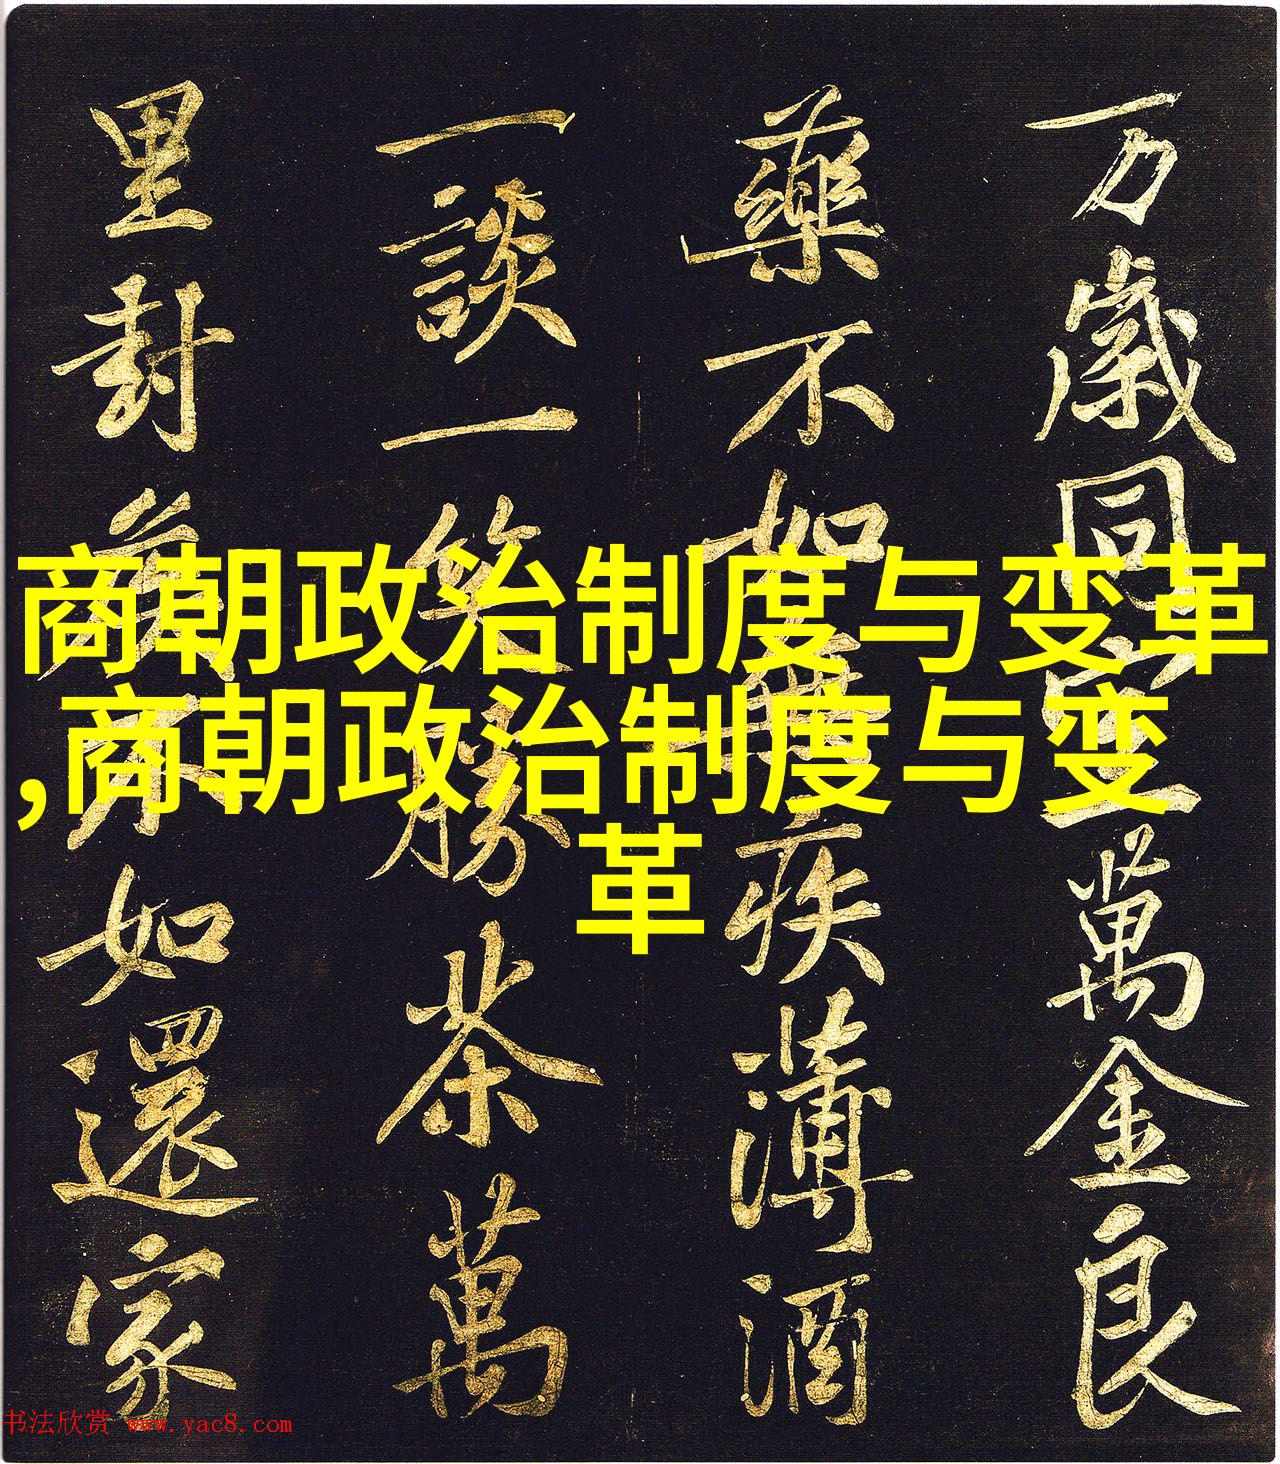 商朝政治制度与变革
,商朝政治制度与变
革
万歲同萬金良
藥不如無疾薄酒
一談一笑勝茶萬
里封不如還家
书法欣赏 www.yac8.com